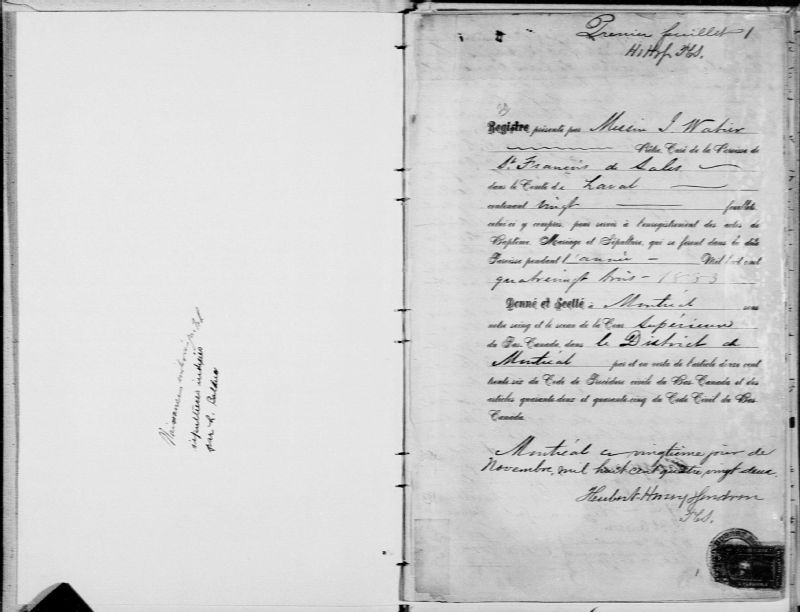 Premier feuillet 1
Registre présenté par Messire J. Watier
Prêtre, Curé de la Paroisse de
St. François de Sales
dans le Comté de Laval
contenant vingt feuillets
celui-ci y compris, pour servir à l'enregistrement des actes de
Baptême, Mariage et Sépulture, qui se feront dans la dite
Paroisse pendant l'année Mil huit cent
quatrevingt trois - 1883
Donné et Scellé à Montréal sous
notre seing et le sceau de la Cour Supérieure
du Bas-Canada, dans le District de
Montréal par et en vertu de l'article douze cent
trente six du Code de Procédure civile du Bas-Canada et des
articles quarante-deux et quarante-cinq du Code Civil du Bas-
Canada.
Montréal ce vingtième jour de
Novembre, mil huit cent quatre vingt deux.
Naissances
sépultures indexés
par